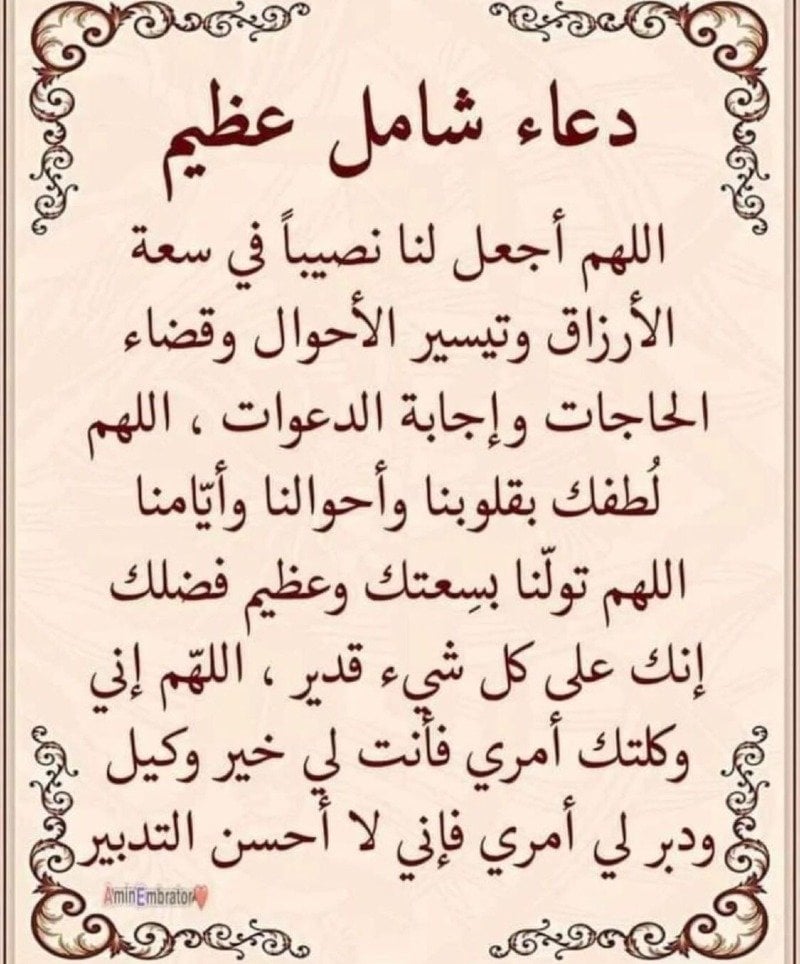 دعاء شامل عظيم
اللهم أجعل لنا نصيباً في سعة
الأرزاق وتيسير الأحوال وقضاء
الحاجات وإجابة الدعوات ، اللهم
لُطفك بقلوبنا وأحوالنا وأيّامنا
اللهم تولّنا بسِعتك وعظيم فضلك
إنك على كل شيء قدير ، اللهّم إني
وكلتك أمري فأنت لي خير وكيل
ودبر لي أمري فإني لا أحسن التدبير
AminEmbrator